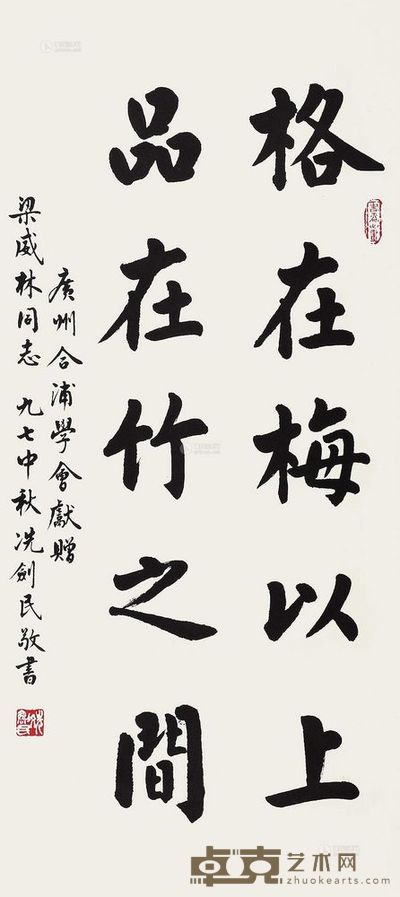 格在梅以上
品在竹之間
廣州合浦學會獻贈
梁威林同志 九七中秋冼劍民敬書
卓克艺术网
zhuokearts.com